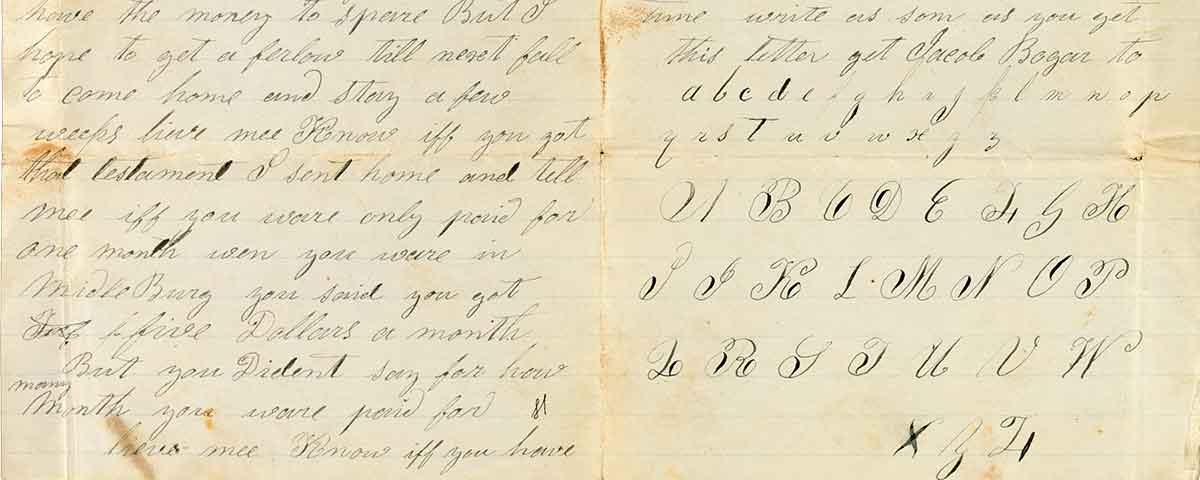 have the money to spare But I
hope to get a ferlow till next fall
to come home and stay a few
weeks lieve mee Know iff you got
that testament I sent home and tell
mee iff you ware only paid for
one month wen you ware in
MidleBurg you said you got
five Dollars a month
But you Dident say for how
many
Month you ware paid for
lieve mee Know iff you have
time write as som as you get
this letter get Jacob Bogar to
a b c d e f g h i j k l m n o p
q r s t u v w x y z
A B C D E F G H
I J K L M N O P
Q R S T U V W
X Y Z